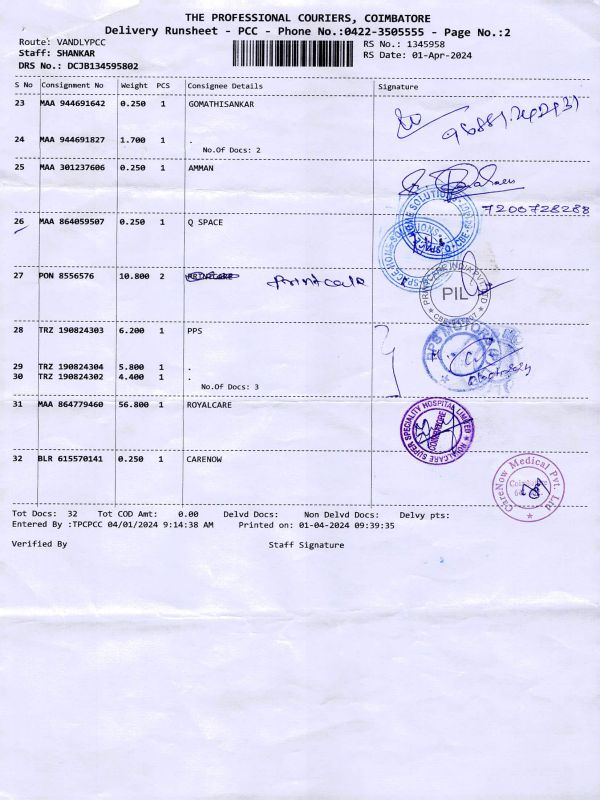 THE PROFESSIONAL COURIERS, COIMBATORE
Delivery Runsheet - PCC - Phone No.:0422-3505555 - Page No.:2
Route: VANDLYPCC
RS No.: 1345958
Staff: SHANKAR
RS Date: 01-Apr-2024
DRS No.: DCJB134595802
S No Consignment No Weight PCS Consignee Details Signature
23 MAA 944691642 0.250 1 GOMATHISANKAR
24 MAA 944691827 1.700 1 .
No.Of Docs: 2
25 MAA 301237606 0.250 1 AMMAN
7200728288
26 MAA 864059507 0.250 1 Q SPACE
27 PON 8556576 10.800 2 printcare
PRINTCARE INDIA PVT LTD
PIL
28 TRZ 190824303 6.200 1 PPS
29 TRZ 190824304 5.800 1 .
30 TRZ 190824302 4.400 1 .
No.Of Docs: 3
31 MAA 864779460 56.800 1 ROYALCARE
ROYALCARE SUPER SPECIALITY HOSPITAL LIMITED
COIMBATORE
32 BLR 615570141 0.250 1 CARENOW
CareNow Medical Pvt. Ltd
Tot Docs: 32 Tot COD Amt: 0.00 Delvd Docs: Non Delvd Docs: Delvy pts:
Entered By :TPCPCC 04/01/2024 9:14:38 AM Printed on: 01-04-2024 09:39:35
Verified By Staff Signature